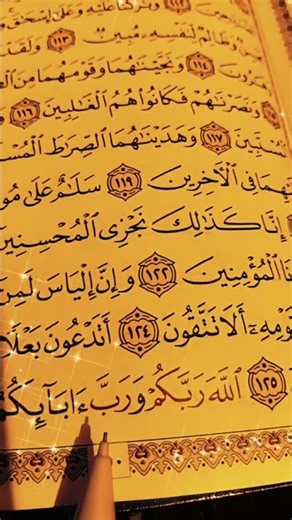 ١١٢ وَبَٰرَكْنَا عَلَيْهِ وَعَلَىٰٓ إِسْحَٰقَ
وَظَالِمٌ لِّنَفْسِهِۦ مُبِينٌ ١١٣ وَلَقَدْ
١١٤ وَنَجَّيْنَٰهُمَا وَقَوْمَهُمَا مِنَ
وَنَصَرْنَٰهُمْ فَكَانُوا۟ هُمُ ٱلْغَٰلِبِينَ ١١٦
١١٧ وَهَدَيْنَٰهُمَا ٱلصِّرَٰطَ
فِى ٱلْءَاخِرِينَ ١١٩ سَلَٰمٌ عَلَىٰ
إِنَّا كَذَٰلِكَ نَجْزِى ٱلْمُحْسِنِينَ
ٱلْمُؤْمِنِينَ ١٢٢ وَإِنَّ إِلْيَاسَ لَمِنَ
أَلَا تَتَّقُونَ ١٢٤ أَتَدْعُونَ بَعْلًا
١٢٥ ٱللَّهَ رَبَّكُمْ وَرَبَّ ءَابَآئِكُمُ